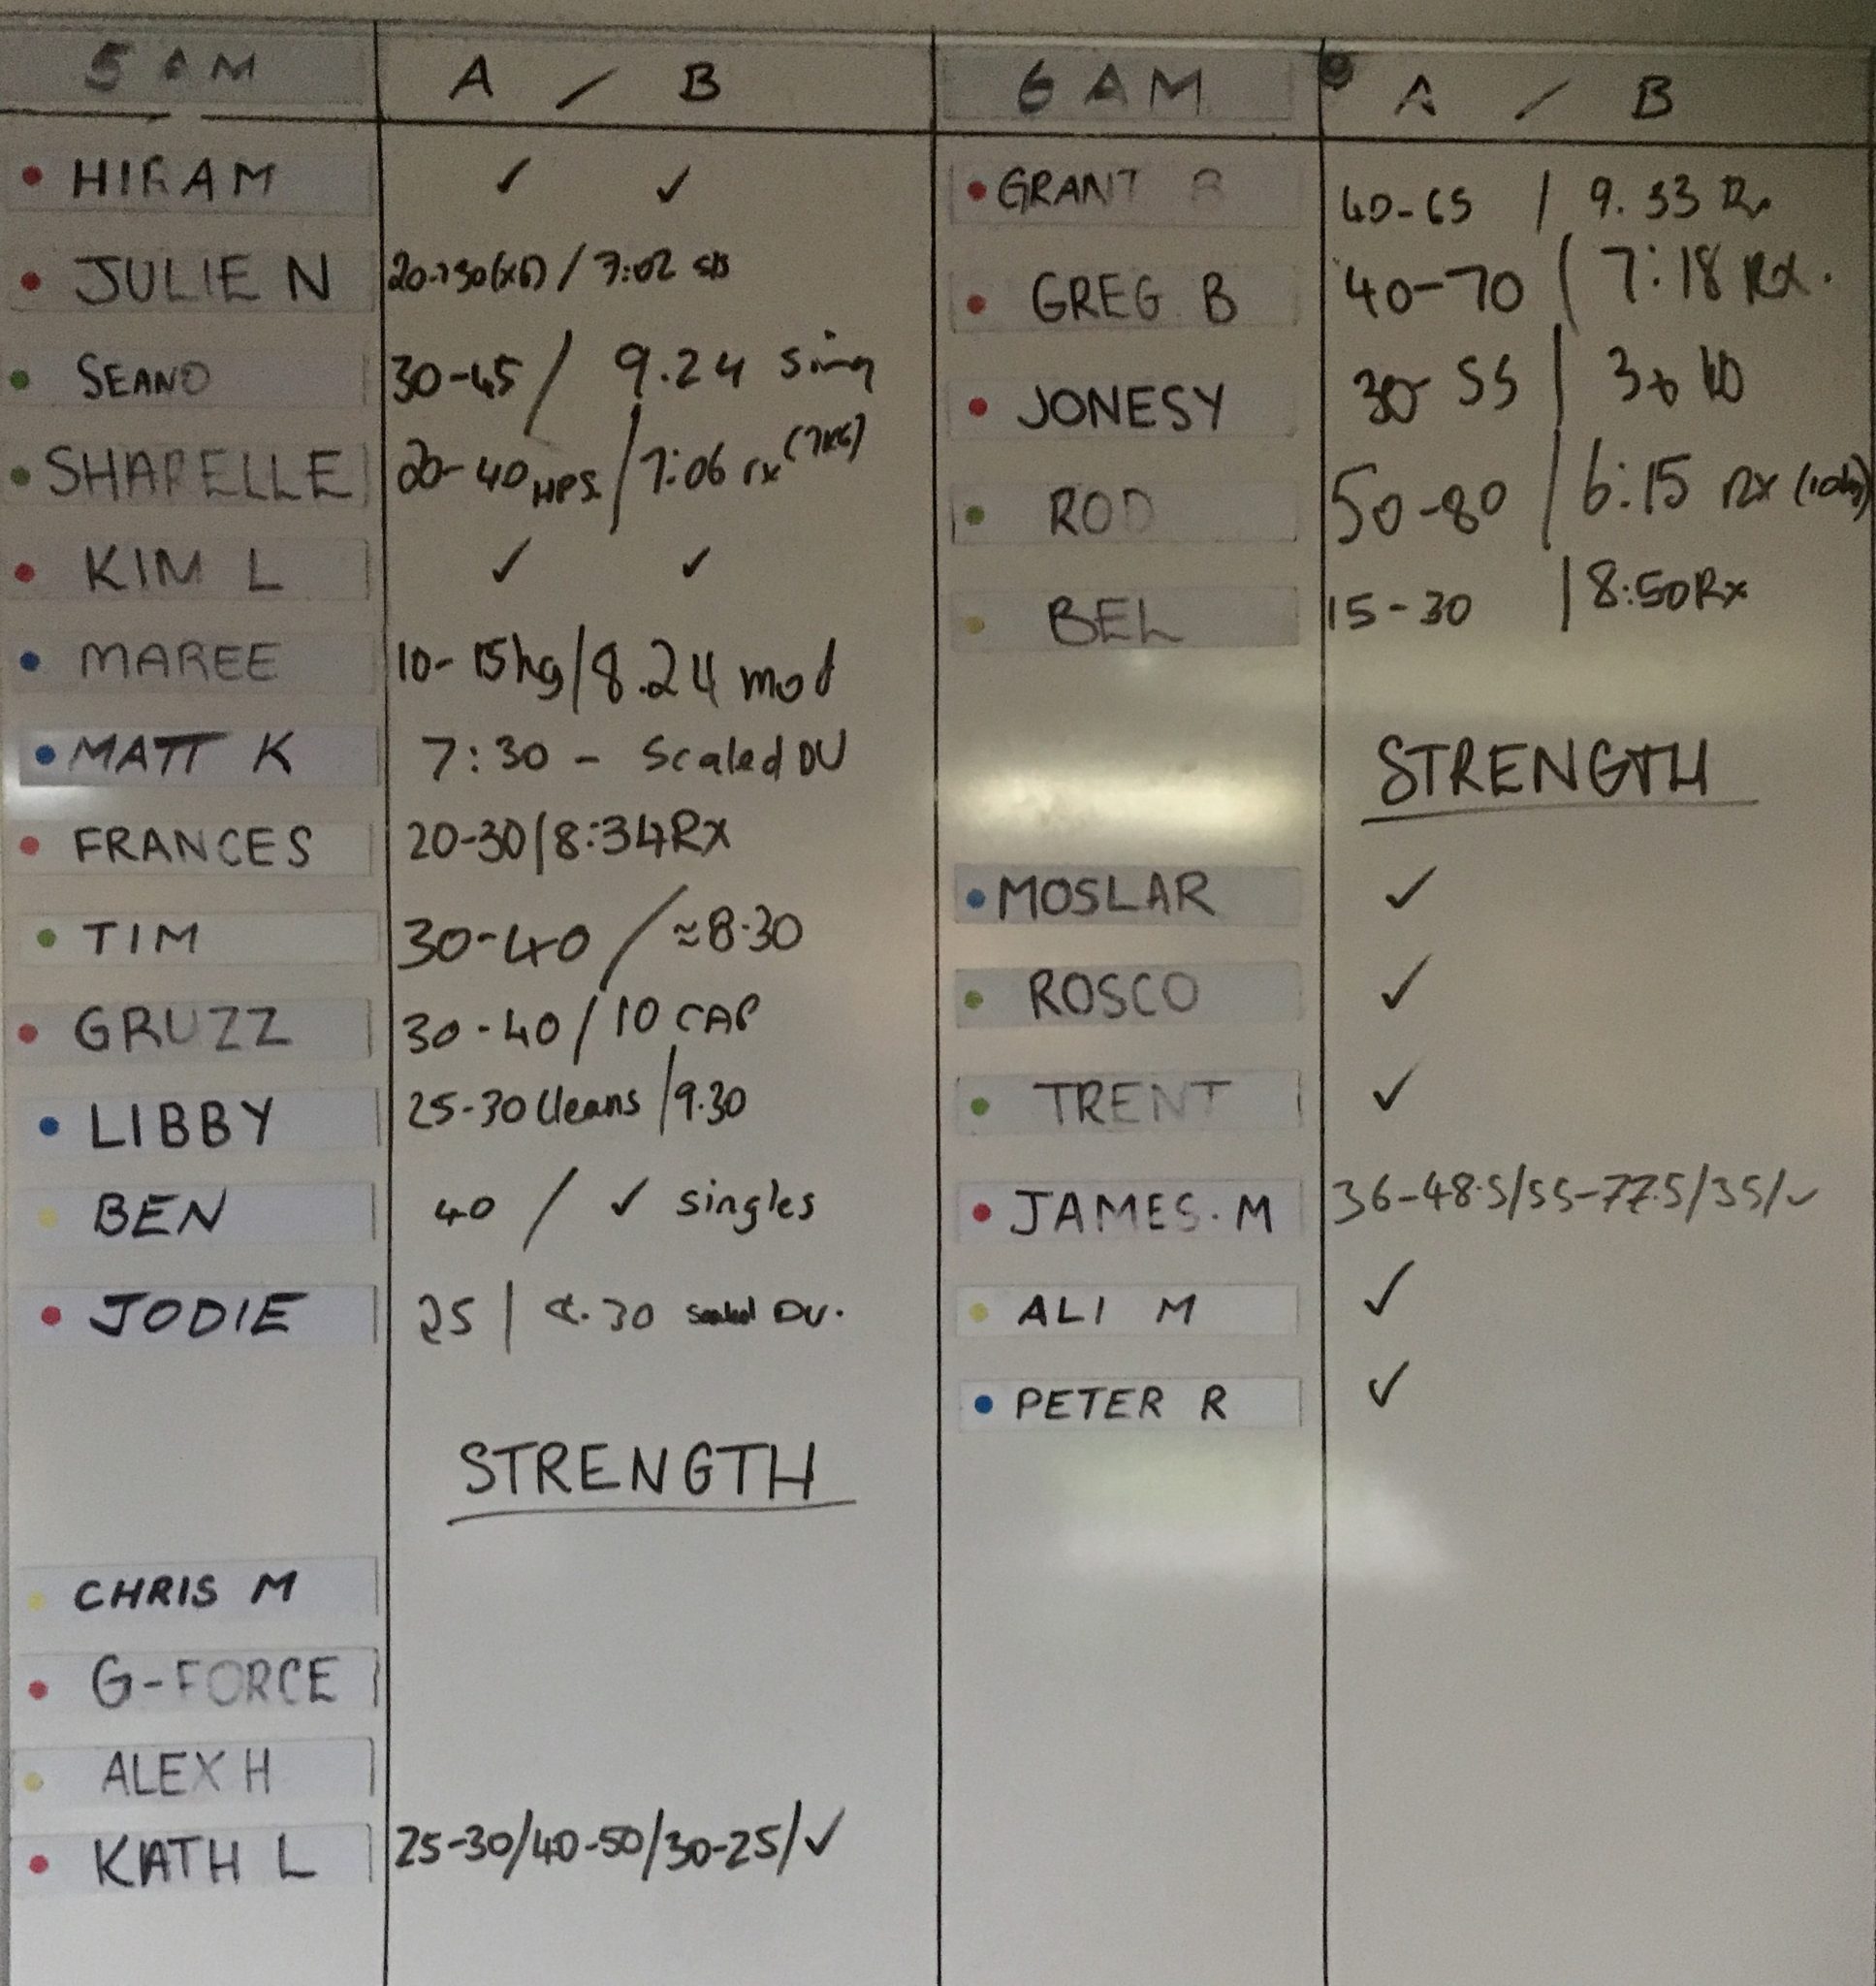 5 AM A / B
HIRAM ✓ ✓
JULIE N 20-30(x6) / 7:02
SEANO 30-45 / 9.24 Sing
SHAPELLE 20-40 HPS / 7:06 rx (7KG)
KIM L ✓ ✓
MAREE 10-15kg / 8.24 mod
MATT K 7:30 - Scaled DU
FRANCES 20-30 / 8:34 Rx
TIM 30-40 / ≈8.30
GRUZZ 30-40 / 10 CAP
LIBBY 25-30 Cleans / 9.30
BEN 40 / ✓ singles
JODIE 25 | 8.30 scaled DU.
STRENGTH
CHRIS M
G-FORCE
ALEX H
KATH L 25-30/40-50/30-25/✓
6 AM A / B
GRANT B 40-65 / 9.33 Rx
GREG B 40-70 / 7:18 RX.
JONESY 30-55 |
ROD 50-80 / 6:15 Rx (10kg)
BEL 15-30 | 8:50 Rx
STRENGTH
MOSLAR ✓
ROSCO ✓
TRENT ✓
JAMES. M 36-48.5/55-77.5/35/✓
ALI M ✓
PETER R ✓